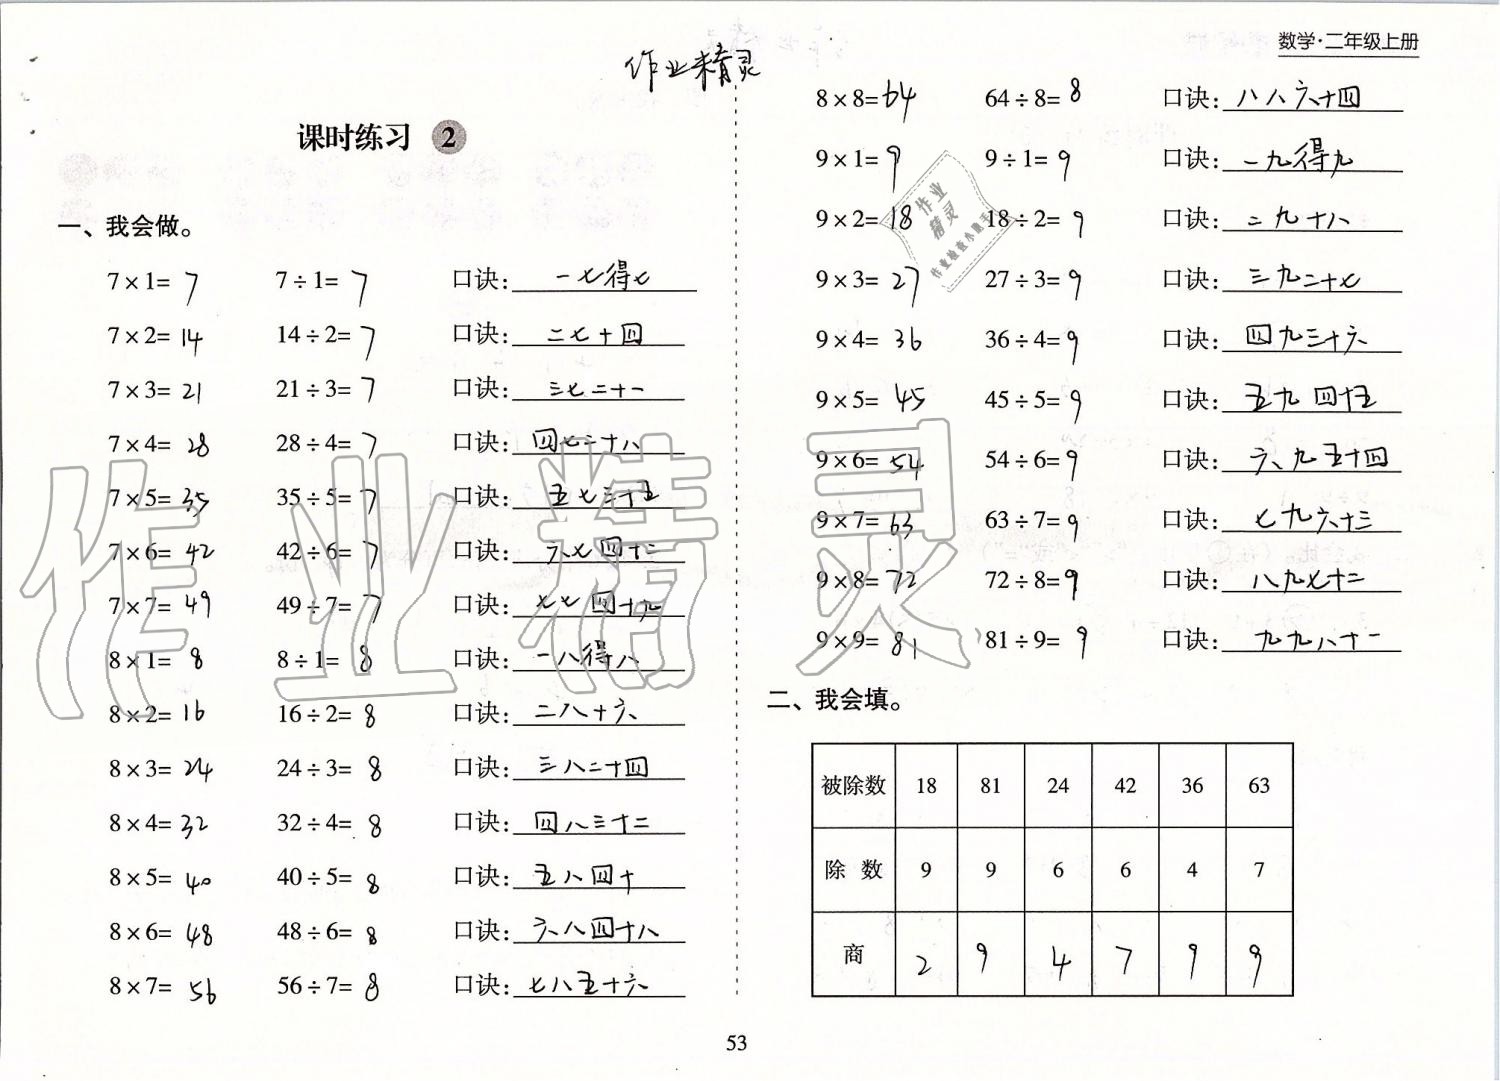 作业精灵
数学·二年级上册
课时练习 2
一、我会做。
7×1= 7 7÷1= 7 口诀: 一七得七
7×2= 14 14÷2= 7 口诀: 二七十四
7×3= 21 21÷3= 7 口诀: 三七二十一
7×4= 28 28÷4= 7 口诀: 四七二十八
7×5= 35 35÷5= 7 口诀: 五七三十五
7×6= 42 42÷6= 7 口诀: 六七四十二
7×7= 49 49÷7= 7 口诀: 七七四十九
8×1= 8 8÷1= 8 口诀: 一八得八
8×2= 16 16÷2= 8 口诀: 二八十六
8×3= 24 24÷3= 8 口诀: 三八二十四
8×4= 32 32÷4= 8 口诀: 四八三十二
8×5= 40 40÷5= 8 口诀: 五八四十
8×6= 48 48÷6= 8 口诀: 六八四十八
8×7= 56 56÷7= 8 口诀: 七八五十六
8×8= 64 64÷8= 8 口诀: 八八六十四
9×1= 9 9÷1= 9 口诀: 一九得九
9×2= 18 18÷2= 9 口诀: 二九十八
9×3= 27 27÷3= 9 口诀: 三九二十七
9×4= 36 36÷4= 9 口诀: 四九三十六
9×5= 45 45÷5= 9 口诀: 五九四十五
9×6= 54 54÷6= 9 口诀: 六九五十四
9×7= 63 63÷7= 9 口诀: 七九六十三
9×8= 72 72÷8= 9 口诀: 八九七十二
9×9= 81 81÷9= 9 口诀: 九九八十一
二、我会填。
被除数 18 81 24 42 36 63
除数 9 9 6 6 4 7
商 2 9 4 7 9 9
53
作业精灵
作业
精灵
作业检查小助手